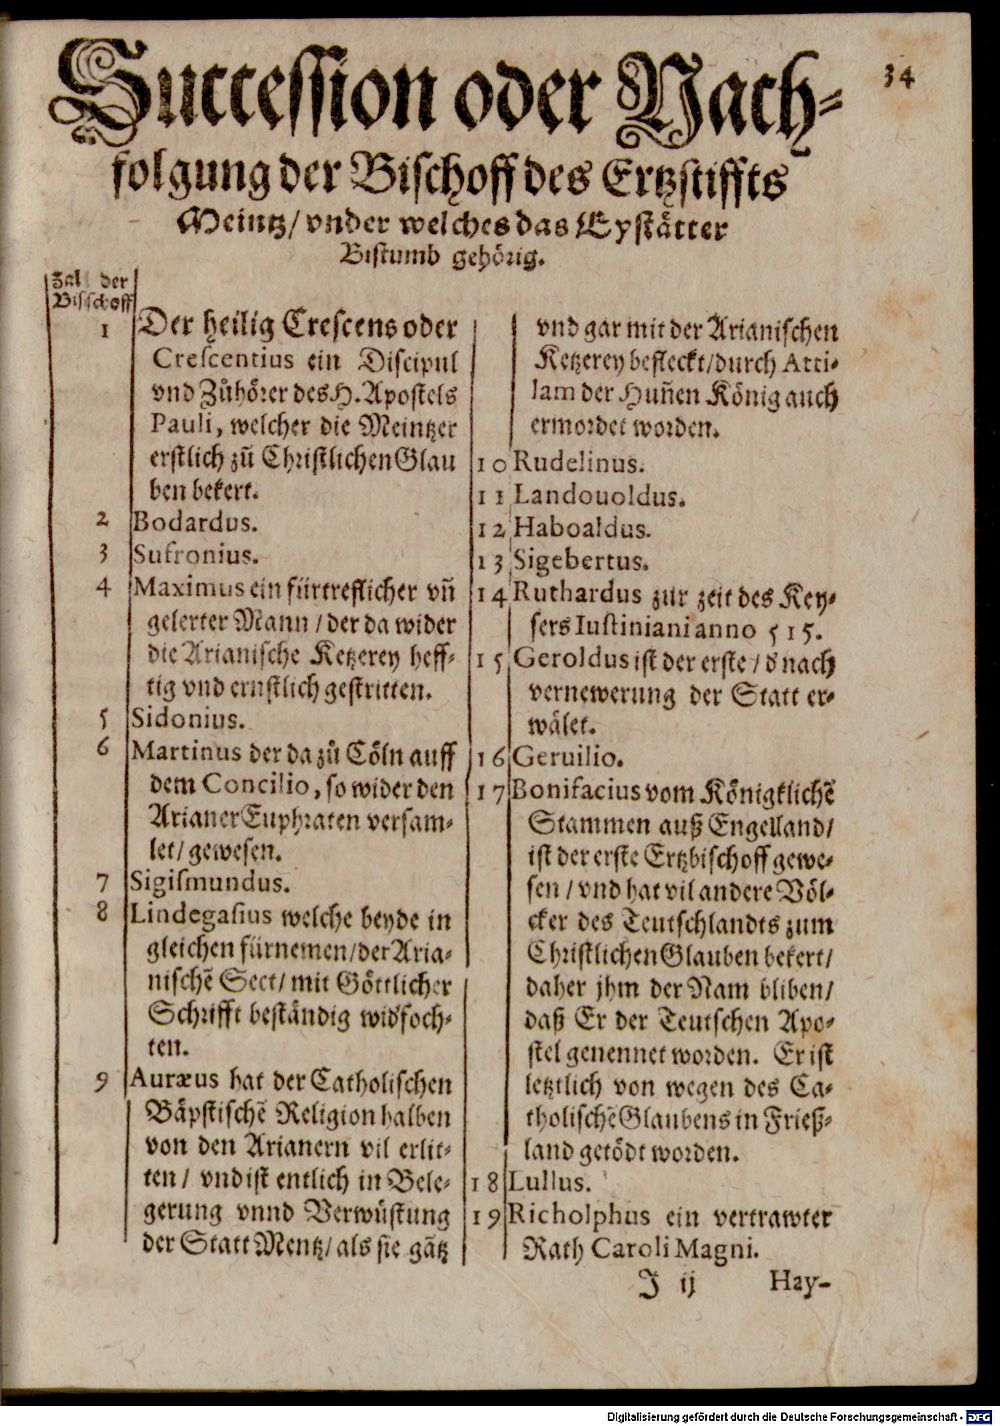 34
Succession oder Nach-
folgung der Bischoff des Ertzstiffts
Meintz/ vnder welches das Eystätter
Bistumb gehörig.
Zal der
Bisschoff
1 Der heilig Crescens oder
Crescentius ein Discipul
vnd Zůhörer des H. Apostels
Pauli, welcher die Meintzer
erstlich zů Christlichen Glau
ben bekert.
2 Bodardus.
3 Sufronius.
4 Maximus ein fürtreflicher vñ
gelerter Mann / der da wider
die Arianische Ketzerey heff-
tig vnd ernstlich gestritten.
5 Sidonius.
6 Martinus der da zů Cöln auff
dem Concilio, so wider den
Arianer Euphraten versam-
let/ gewesen.
7 Sigismundus.
8 Lindegasius welche beyde in
gleichen fürnemen/ der Aria-
nischē Sect/ mit Göttlicher
Schrifft beständig wid'foch-
ten.
9 Auræus hat der Catholischen
Bäpstischē Religion halben
von den Arianern vil erlit-
ten/ vnd ist entlich in Bele-
gerung vnnd Verwüstung
der Statt Mentz/ als sie gātz
vnd gar mit der Arianischen
Ketzerey befleckt/ durch Atti-
lam der Huñen König auch
ermordet worden.
10 Rudelinus.
11 Landouoldus.
12 Haboaldus.
13 Sigebertus.
14 Ruthardus zur zeit des Key-
sers Iustiniani anno 515.
15 Geroldus ist der erste/ d' nach
vernewerung der Statt er-
wälet.
16 Geruilio.
17 Bonifacius vom Königklichē
Stammen auß Engelland/
ist der erste Ertzbischoff gewe-
sen / vnd hat vil andere Völ-
cker des Teutschlandts zum
Christlichen Glauben bekert/
daher jhm der Nam bliben/
daß Er der Teutschen Apo-
stel genennet worden. Er ist
letztlich von wegen des Ca-
tholischē Glaubens in Frieß-
land getödt worden.
18 Lullus.
19 Richolphus ein vertrawter
Rath Caroli Magni.
J ij Hay-
Digitalisierung gefördert durch die Deutsche Forschungsgemeinschaft - DFG